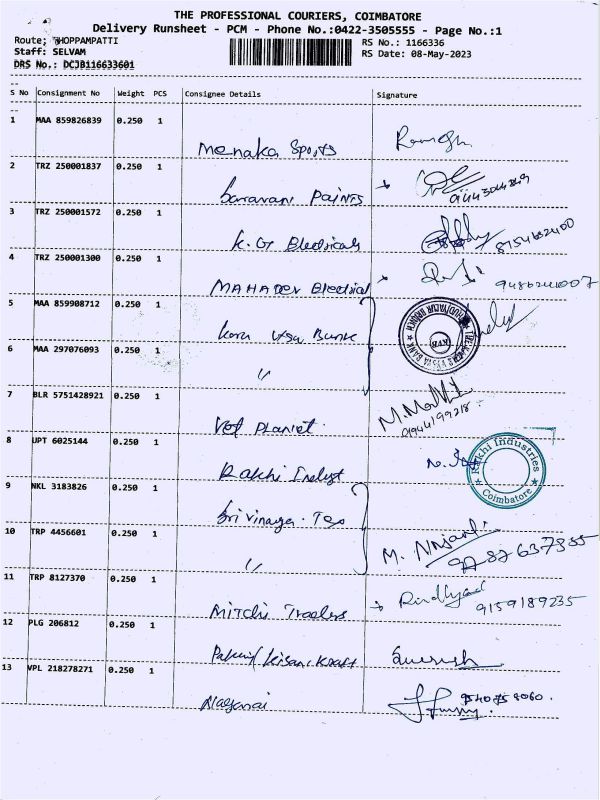 THE PROFESSIONAL COURIERS, COIMBATORE
Delivery Runsheet - PCM - Phone No.:0422-3505555 - Page No.:1
Route: THOPPAMPATTI
RS No.: 1166336
Staff: SELVAM
RS Date: 08-May-2023
DRS No.: DCJB116633601
S No Consignment No Weight PCS Consignee Details Signature
1 MAA 859826839 0.250 1 Menaka Sports Ramesh
2 TRZ 250001837 0.250 1 Saravana Paints
3 TRZ 250001572 0.250 1 K.G Electricals
4 TRZ 250001300 0.250 1 MAHADEV Electrical
5 MAA 859908712 0.250 1 Karu Vysa Bank
6 MAA 297076093 0.250 1 "
7 BLR 5751428921 0.250 1 Vet Planet
8 UPT 6025144 0.250 1 Rakhi Indust
Rakhi Industries
Coimbatore
9 NKL 3183826 0.250 1 Sri Vinaya Tex
10 TRP 4456601 0.250 1 "
11 TRP 8127370 0.250 1 Mitchi Traders 9159189235
12 PLG 206812 0.250 1 Kisan Kraft Suresh
13 VPL 218278271 0.250 1